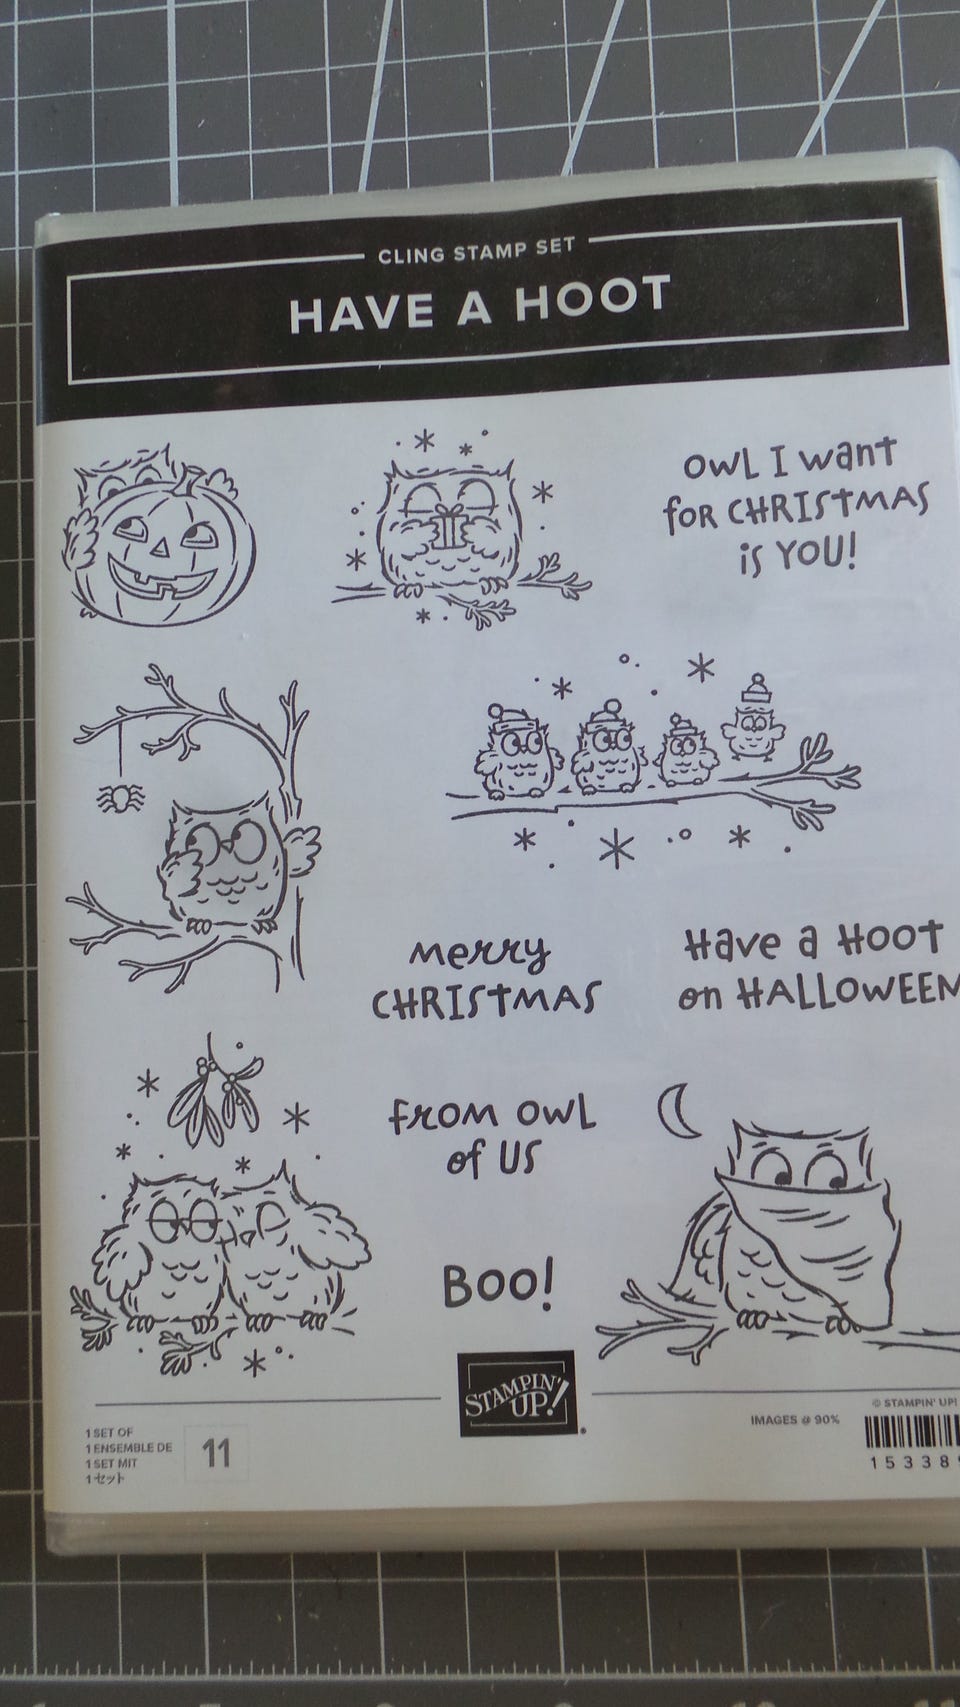 CLING STAMP SET
HAVE A HOOT
OWL I want
for CHRISTMAS
is YOU!
merry
CHRISTMAS
Have a HOOT
on HALLOWEEN
from OWL
of US
BOO!
STAMPIN'
UP!
© STAMPIN' UP!
IMAGES @ 90%
1 SET OF
1 ENSEMBLE DE
1 SET MIT
1 セット
11
15338